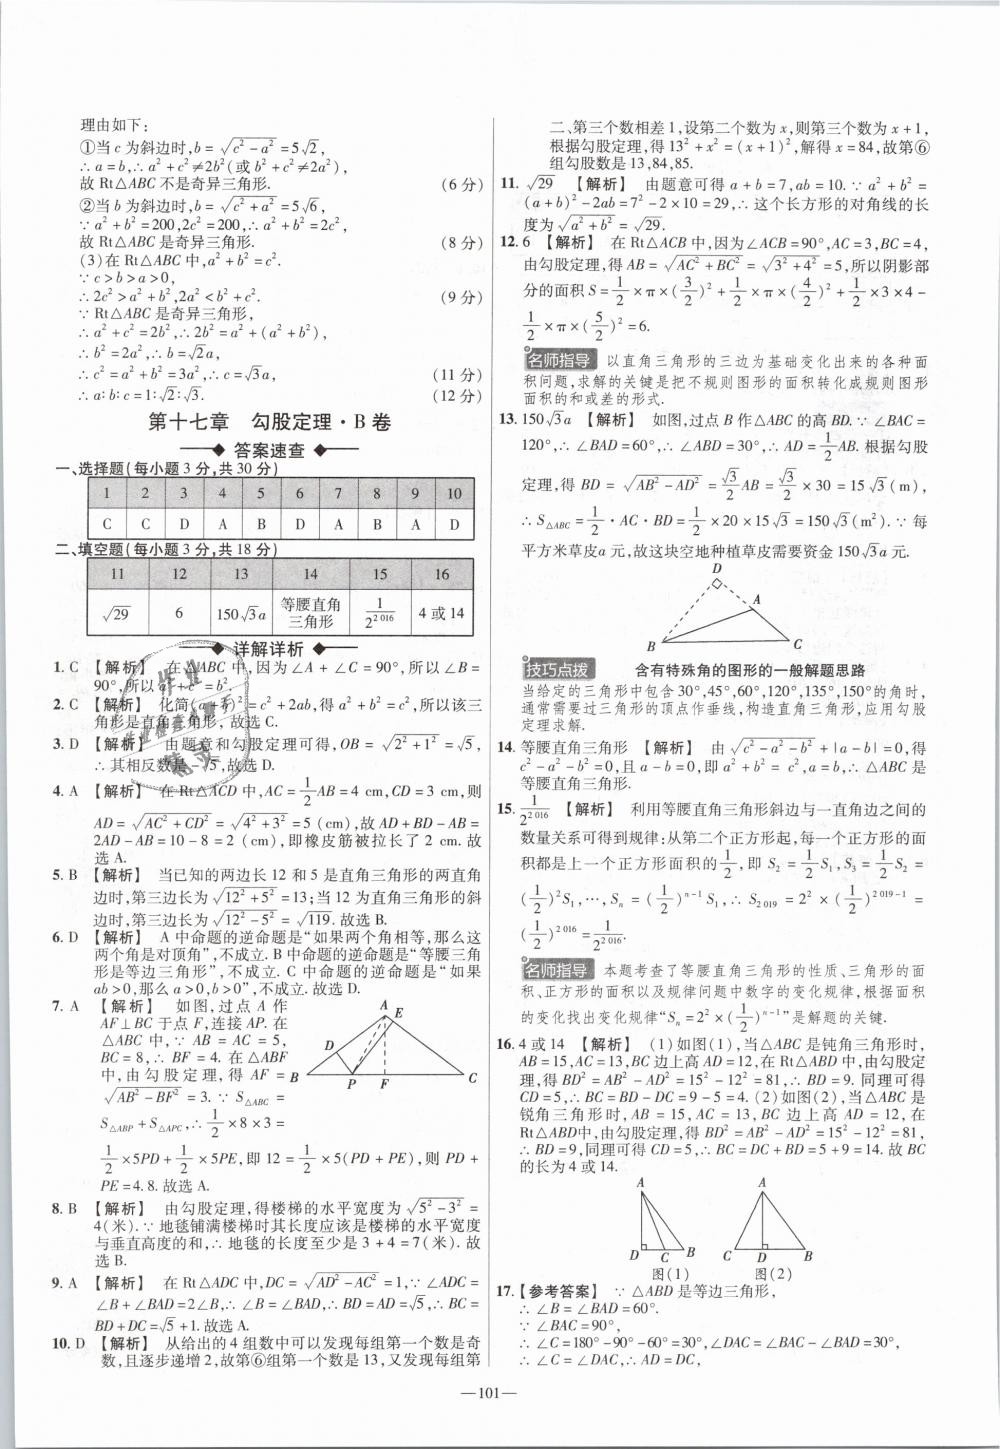 理由如下:
①当 c 为斜边时,b = √(c² − a²) = 5√2,
∴ a = b,∴ a² + c² ≠ 2b²(或 b² + c² ≠ 2a²),
故 Rt△ABC 不是奇异三角形. (6 分)
②当 b 为斜边时,b = √(c² + a²) = 5√6,
∵ a² + b² = 200,2c² = 200,∴ a² + b² = 2c²,
故 Rt△ABC 是奇异三角形. (8 分)
(3)在 Rt△ABC 中,a² + b² = c².
∵ c > b > a > 0,
∴ 2c² > a² + b²,2a² < b² + c². (9 分)
∵ Rt△ABC 是奇异三角形,
∴ a² + c² = 2b²,∴ 2b² = a² + (a² + b²),
∴ b² = 2a²,∴ b = √2a,
∴ c² = a² + b² = 3a²,∴ c = √3a, (11 分)
∴ a∶b∶c = 1∶√2∶√3. (12 分)
第十七章 勾股定理·B 卷
答案速查
一、选择题(每小题 3 分,共 30 分)
1 2 3 4 5 6 7 8 9 10
C C D A B D A B A D
二、填空题(每小题 3 分,共 18 分)
11 12 13 14 15 16
√29 6 150√3a 等腰直角三角形 1/2^2 016 4 或 14
详解详析
1. C 【解析】 在△ABC 中,因为∠A + ∠C = 90°,所以∠B =
90°,所以 a² + c² = b².
2. C 【解析】 化简(a + b)² = c² + 2ab,得 a² + b² = c²,所以该三
角形是直角三角形,故选 C.
3. D 【解析】 由题意和勾股定理可得,OB = √(2² + 1²) = √5,
∴ 其相反数是 −√5,故选 D.
4. A 【解析】 在 Rt△ACD 中,AC = 1/2 AB = 4 cm,CD = 3 cm,则
AD = √(AC² + CD²) = √(4² + 3²) = 5 (cm),故 AD + BD − AB =
2AD − AB = 10 − 8 = 2 (cm),即橡皮筋被拉长了 2 cm. 故
选 A.
5. B 【解析】 当已知的两边长 12 和 5 是直角三角形的两直角
边时,第三边长为 √(12² + 5²) = 13;当 12 为直角三角形的斜
边时,第三边长为 √(12² − 5²) = √119. 故选 B.
6. D 【解析】 A 中命题的逆命题是“如果两个角相等,那么这
两个角是对顶角”,不成立. B 中命题的逆命题是“等腰三角
形是等边三角形”,不成立. C 中命题的逆命题是“如果
ab > 0,那么 a > 0,b > 0”,不成立. 故选 D.
7. A 【解析】 如图,过点 A 作
AF⊥BC 于点 F,连接 AP. 在
△ABC 中,∵ AB = AC = 5,
BC = 8,∴ BF = 4. 在△ABF
中,由勾股定理,得 AF =
√(AB² − BF²) = 3. ∵ S△ABC =
S△ABP + S△APC,∴ 1/2 × 8 × 3 =
1/2 × 5PD + 1/2 × 5PE,即 12 = 1/2 × 5(PD + PE),则 PD +
PE = 4.8. 故选 A.
A E
D
B P F C
8. B 【解析】 由勾股定理,得楼梯的水平宽度为 √(5² − 3²) =
4(米). ∵ 地毯铺满楼梯时其长度应该是楼梯的水平宽度
与垂直高度的和,∴ 地毯的长度至少是 3 + 4 = 7(米). 故
选 B.
9. A 【解析】 在 Rt△ADC 中,DC = √(AD² − AC²) = 1,∵ ∠ADC =
∠B + ∠BAD = 2∠B,∴ ∠B = ∠BAD,∴ BD = AD = √5,∴ BC =
BD + DC = √5 + 1. 故选 A.
10. D 【解析】 从给出的 4 组数中可以发现每组第一个数是奇
数,且逐步递增 2,故第⑥组第一个数是 13,又发现每组第
二、第三个数相差 1,设第二个数为 x,则第三个数为 x + 1,
根据勾股定理,得 13² + x² = (x + 1)²,解得 x = 84,故第⑥
组勾股数是 13,84,85.
11. √29 【解析】 由题意可得 a + b = 7,ab = 10. ∵ a² + b² =
(a + b)² − 2ab = 7² − 2 × 10 = 29,∴ 这个长方形的对角线的长
度为 √(a² + b²) = √29.
12. 6 【解析】 在 Rt△ACB 中,因为∠ACB = 90°,AC = 3,BC = 4,
由勾股定理,得 AB = √(AC² + BC²) = √(3² + 4²) = 5,所以阴影部
分的面积 S = 1/2 × π × (3/2)² + 1/2 × π × (4/2)² + 1/2 × 3 × 4 −
1/2 × π × (5/2)² = 6.
名师指导 以直角三角形的三边为基础变化出来的各种面
积问题,求解的关键是把不规则图形的面积转化成规则图形
面积的和或差的形式.
13. 150√3a 【解析】 如图,过点 B 作△ABC 的高 BD. ∵ ∠BAC =
120°,∴ ∠BAD = 60°,∴ ∠ABD = 30°,∴ AD = 1/2 AB. 根据勾股
定理,得 BD = √(AB² − AD²) = √3/2 AB = √3/2 × 30 = 15√3(m),
∴ S△ABC = 1/2 · AC · BD = 1/2 × 20 × 15√3 = 150√3(m²). ∵ 每
平方米草皮 a 元,故这块空地种植草皮需要资金 150√3a 元.
D
A
B C
技巧点拨 含有特殊角的图形的一般解题思路
当给定的三角形中包含 30°,45°,60°,120°,135°,150°的角时,
通常需要过三角形的顶点作垂线,构造直角三角形,应用勾股
定理求解.
14. 等腰直角三角形 【解析】 由 √(c² − a² − b²) + |a − b| = 0,得
c² − a² − b² = 0,且 a − b = 0,即 a² + b² = c²,a = b,∴ △ABC 是
等腰直角三角形.
15. 1/2^2 016 【解析】 利用等腰直角三角形斜边与一直角边之间的
数量关系可得到规律:从第二个正方形起,每一个正方形的面
积都是上一个正方形面积的 1/2,即 S₂ = 1/2 S₁,S₃ = 1/2 S₂ =
(1/2)² S₁,…,Sₙ = (1/2)^(n−1) S₁,∴ S₂ ₀₁₉ = 2² × (1/2)^(2 019−1) =
(1/2)^2 016 = 1/2^2 016.
名师指导 本题考查了等腰直角三角形的性质、三角形的面
积、正方形的面积以及规律问题中数字的变化规律,根据面积
的变化找出变化规律“Sₙ = 2² × (1/2)^(n−1)”是解题的关键.
16. 4 或 14 【解析】 (1)如图(1),当△ABC 是钝角三角形时,
AB = 15,AC = 13,BC 边上高 AD = 12,在 Rt△ABD 中,由勾股定
理,得 BD² = AB² − AD² = 15² − 12² = 81,∴ BD = 9. 同理可得
CD = 5,∴ BC = BD − DC = 9 − 5 = 4. (2)如图(2),当△ABC 是
锐角三角形时,AB = 15,AC = 13,BC 边上高 AD = 12,在
Rt△ABD中,由勾股定理,得 BD² = AB² − AD² = 15² − 12² = 81,
∴ BD = 9,同理可得 CD = 5,∴ BC = DC + BD = 5 + 9 = 14. 故 BC
的长为 4 或 14.
A A
D C B C D B
图(1) 图(2)
17. 【参考答案】 ∵ △ABD 是等边三角形,
∴ ∠B = ∠BAD = 60°.
∵ ∠BAC = 90°,
∴ ∠C = 180° − 90° − 60° = 30°,∠DAC = ∠BAC − ∠BAD = 30°,
∴ ∠C = ∠DAC,∴ AD = DC,
—101—